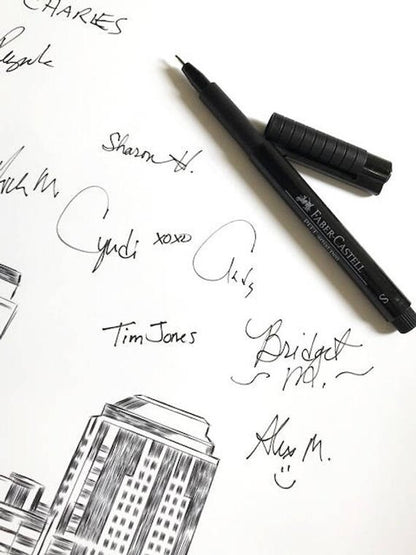 CHARLES
Sharon H.
M.
Cyndi xoxo
FABER-CASTELL
PITT artist pen
S
Tim Jones
Bridget
M.
Alyss M.